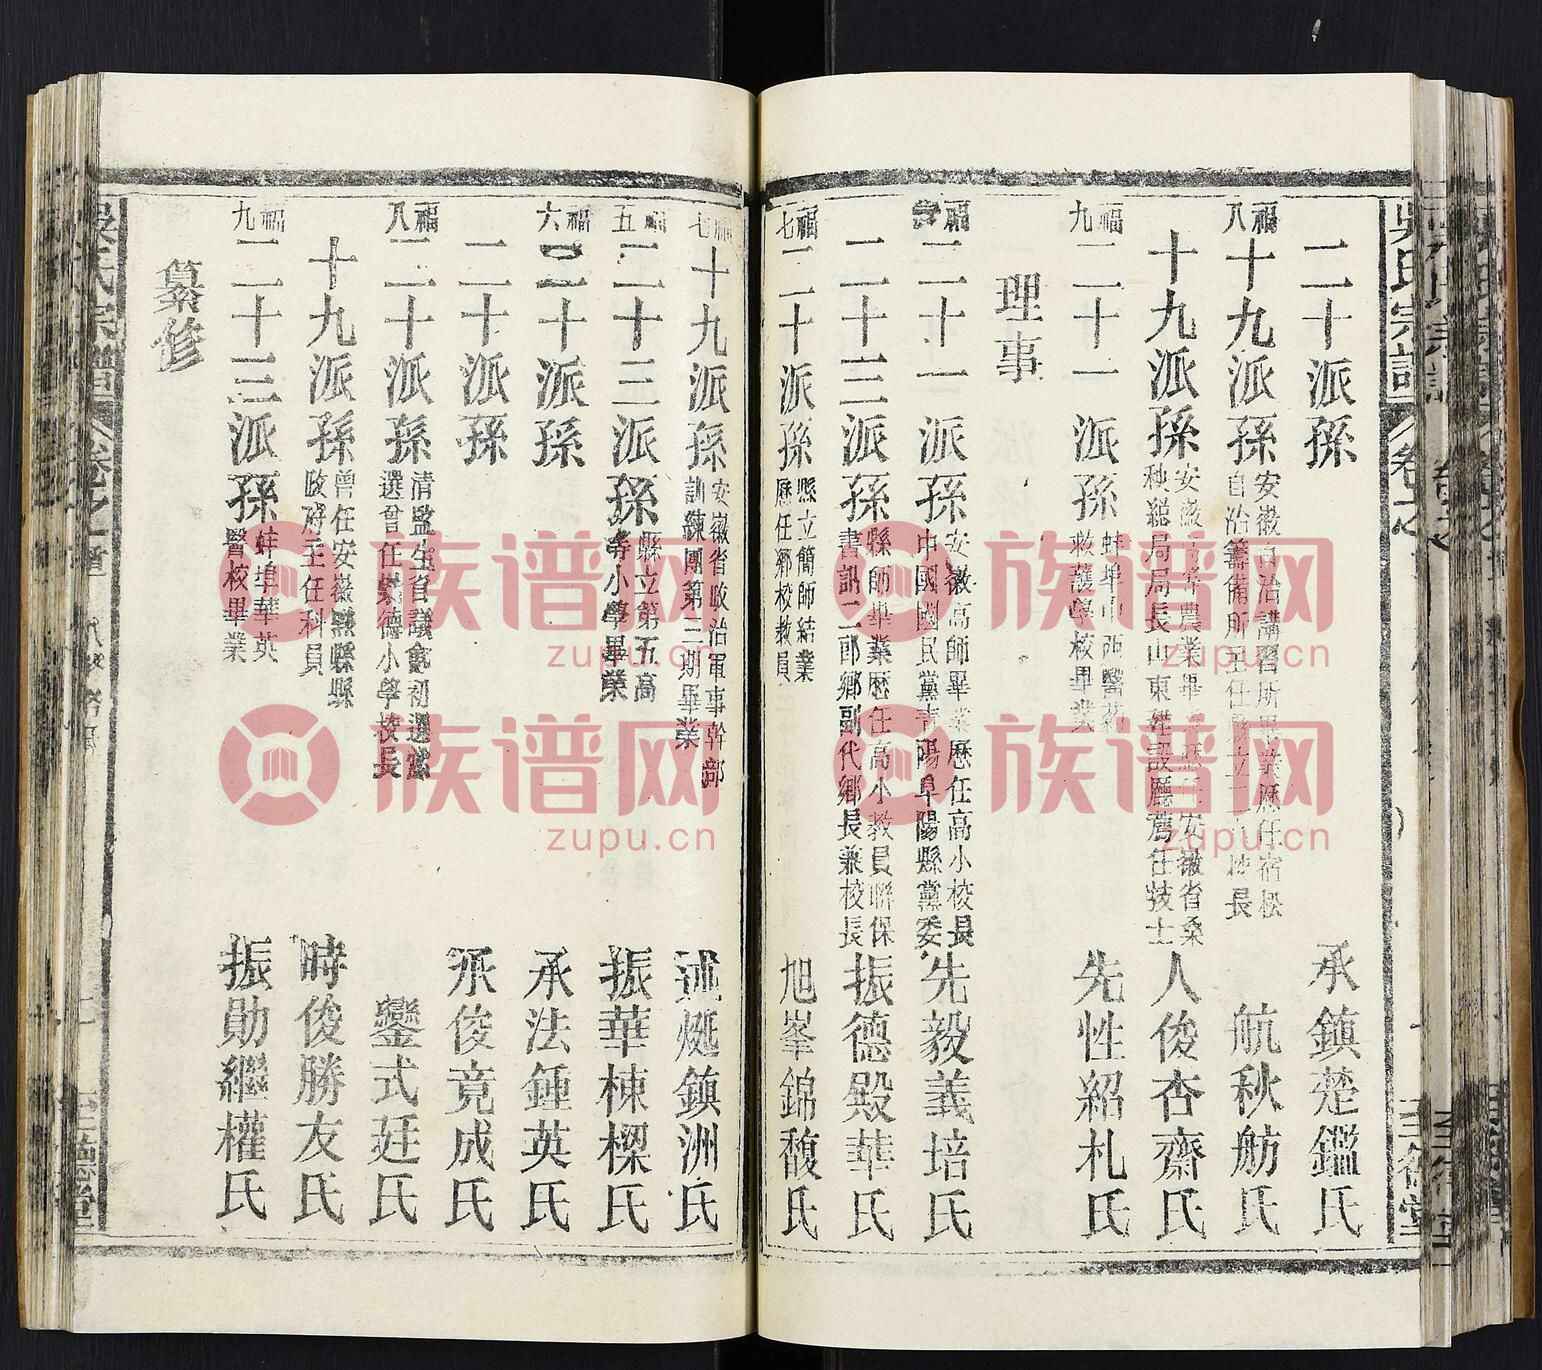 吳氏宗譜 卷之
三德堂
二十派孫 承鎮楚鑑氏
福八 十九派孫 安徽自治講習所畢業歷任宿松
自治籌備所主任 長 航秋舫氏
十九派孫 安徽 農業畢 安徽省桑
秧總局局長山東建設廳薦任技士 人俊杏齋氏
福九 二十一派孫 蚌埠中西醫
救護學校畢業 先性紹札氏
理事
福 二十一派孫 安徽高師畢業歷任高小校長
中國國民黨 陽阜陽縣黨委 先毅義培氏
二十三派孫 縣師畢業歷任高小教員聯保
書訊二郎鄉副代鄉長兼校長 振德殿華氏
福七 二十派孫 縣立簡師結業
歷任鄉校教員 旭峯錦馥氏
福七 十九派孫 安徽省政治軍事幹部
訓練團第三期畢業 述烻鎮洲氏
福五 二十三派孫 縣立第五高
等小學畢業 振華棟樑氏
福六 二十派孫 承法鍾英氏
二十派孫 承俊竟成氏
福八 二十派孫 清監生省議會初選當
選曾任崇德小學校長 鑾式廷氏
十九派孫 曾任安徽縣縣
政府主任科員 時俊勝友氏
福九 二十三派孫 蚌埠華英
醫校畢業 振勛繼權氏
纂修
吳氏宗譜 卷之首
三德堂
族谱网
zupu.cn
族谱网
zupu.cn
族谱网
zupu.cn
族谱网
zupu.cn